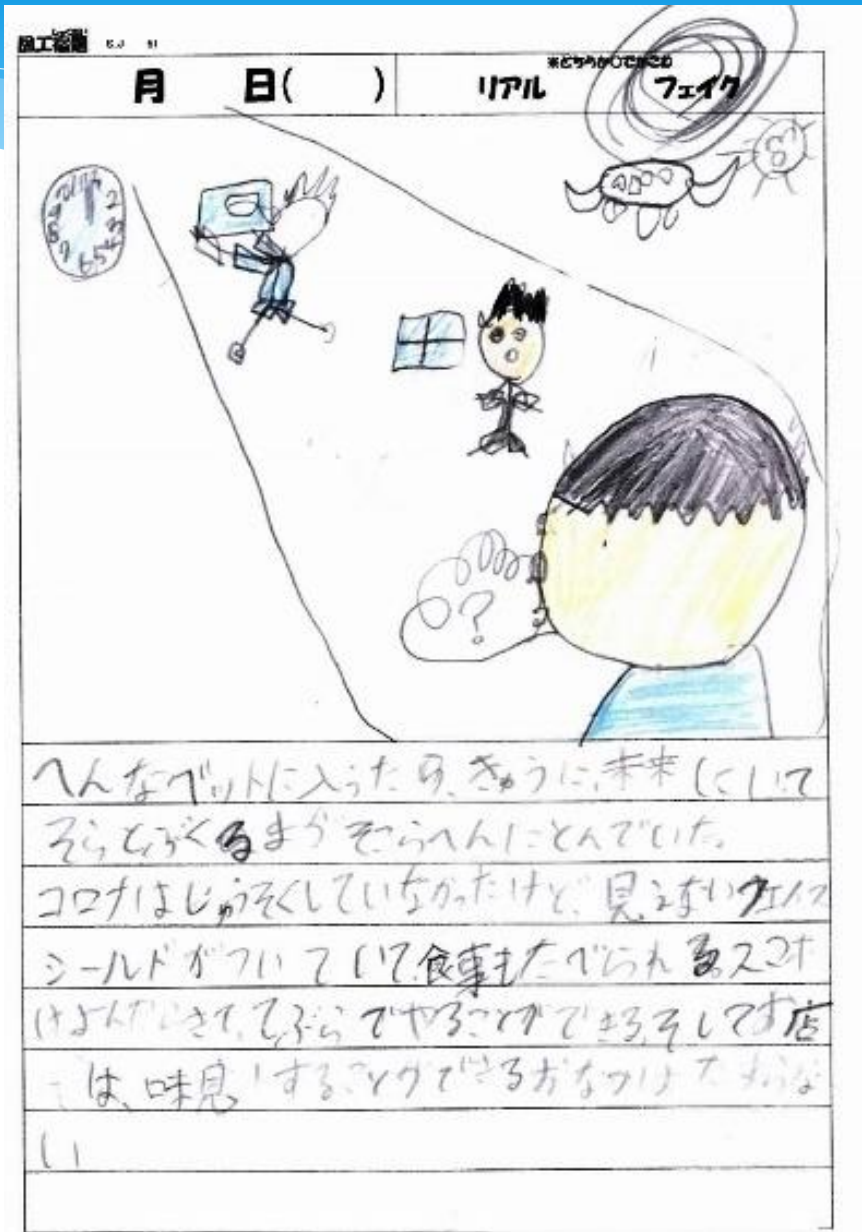 図工宿題
月 日( )
※どちらか○でかこむ
リアル フェイク
?
へんなベットに入ったら、きゅうに、未来にいて
そらとぶくるまがそこらへんにとんでいた。
コロナはしゅうそくしていなかったけど、見えないフェイス
シールドがついていて、食事もたべられる。スマホ
てぶらでやることができる、そしてお店
は、味見することができるおなか
い